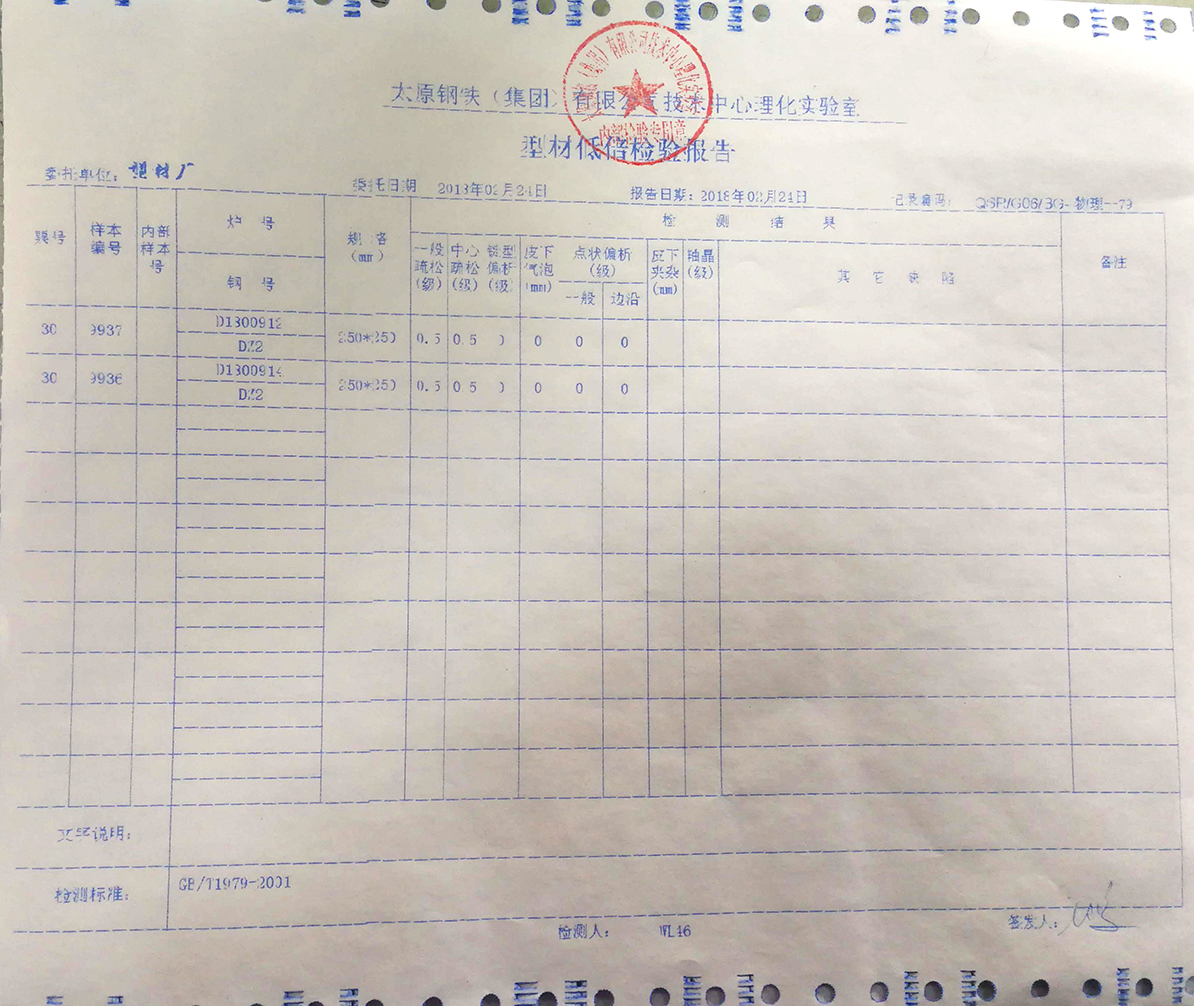 太原钢铁（集团）有限公司技术中心理化实验室
型材低倍检验报告
委托单位： 型材厂 委托日期 2018年02月24日 报告日期：2018年02月24日 记录编码： QSP/G06/BG-物理--79
票号 样本编号 内部样本号 炉号 规格(mm) 检测结果 备注
钢号 一般疏松(级) 中心疏松(级) 锭型偏析(级) 皮下气泡(mm) 点状偏析(级) 皮下夹杂(mm) 轴晶(级) 其它缺陷
一般 边沿
30 9937 D1800912 250*250 0.5 0.5 0 0 0 0
DZ2
30 9936 D1800914 250*250 0.5 0.5 0 0 0 0
DZ2
文字说明：
检测标准： GB/T1979-2001
检测人： WL46 签发人：